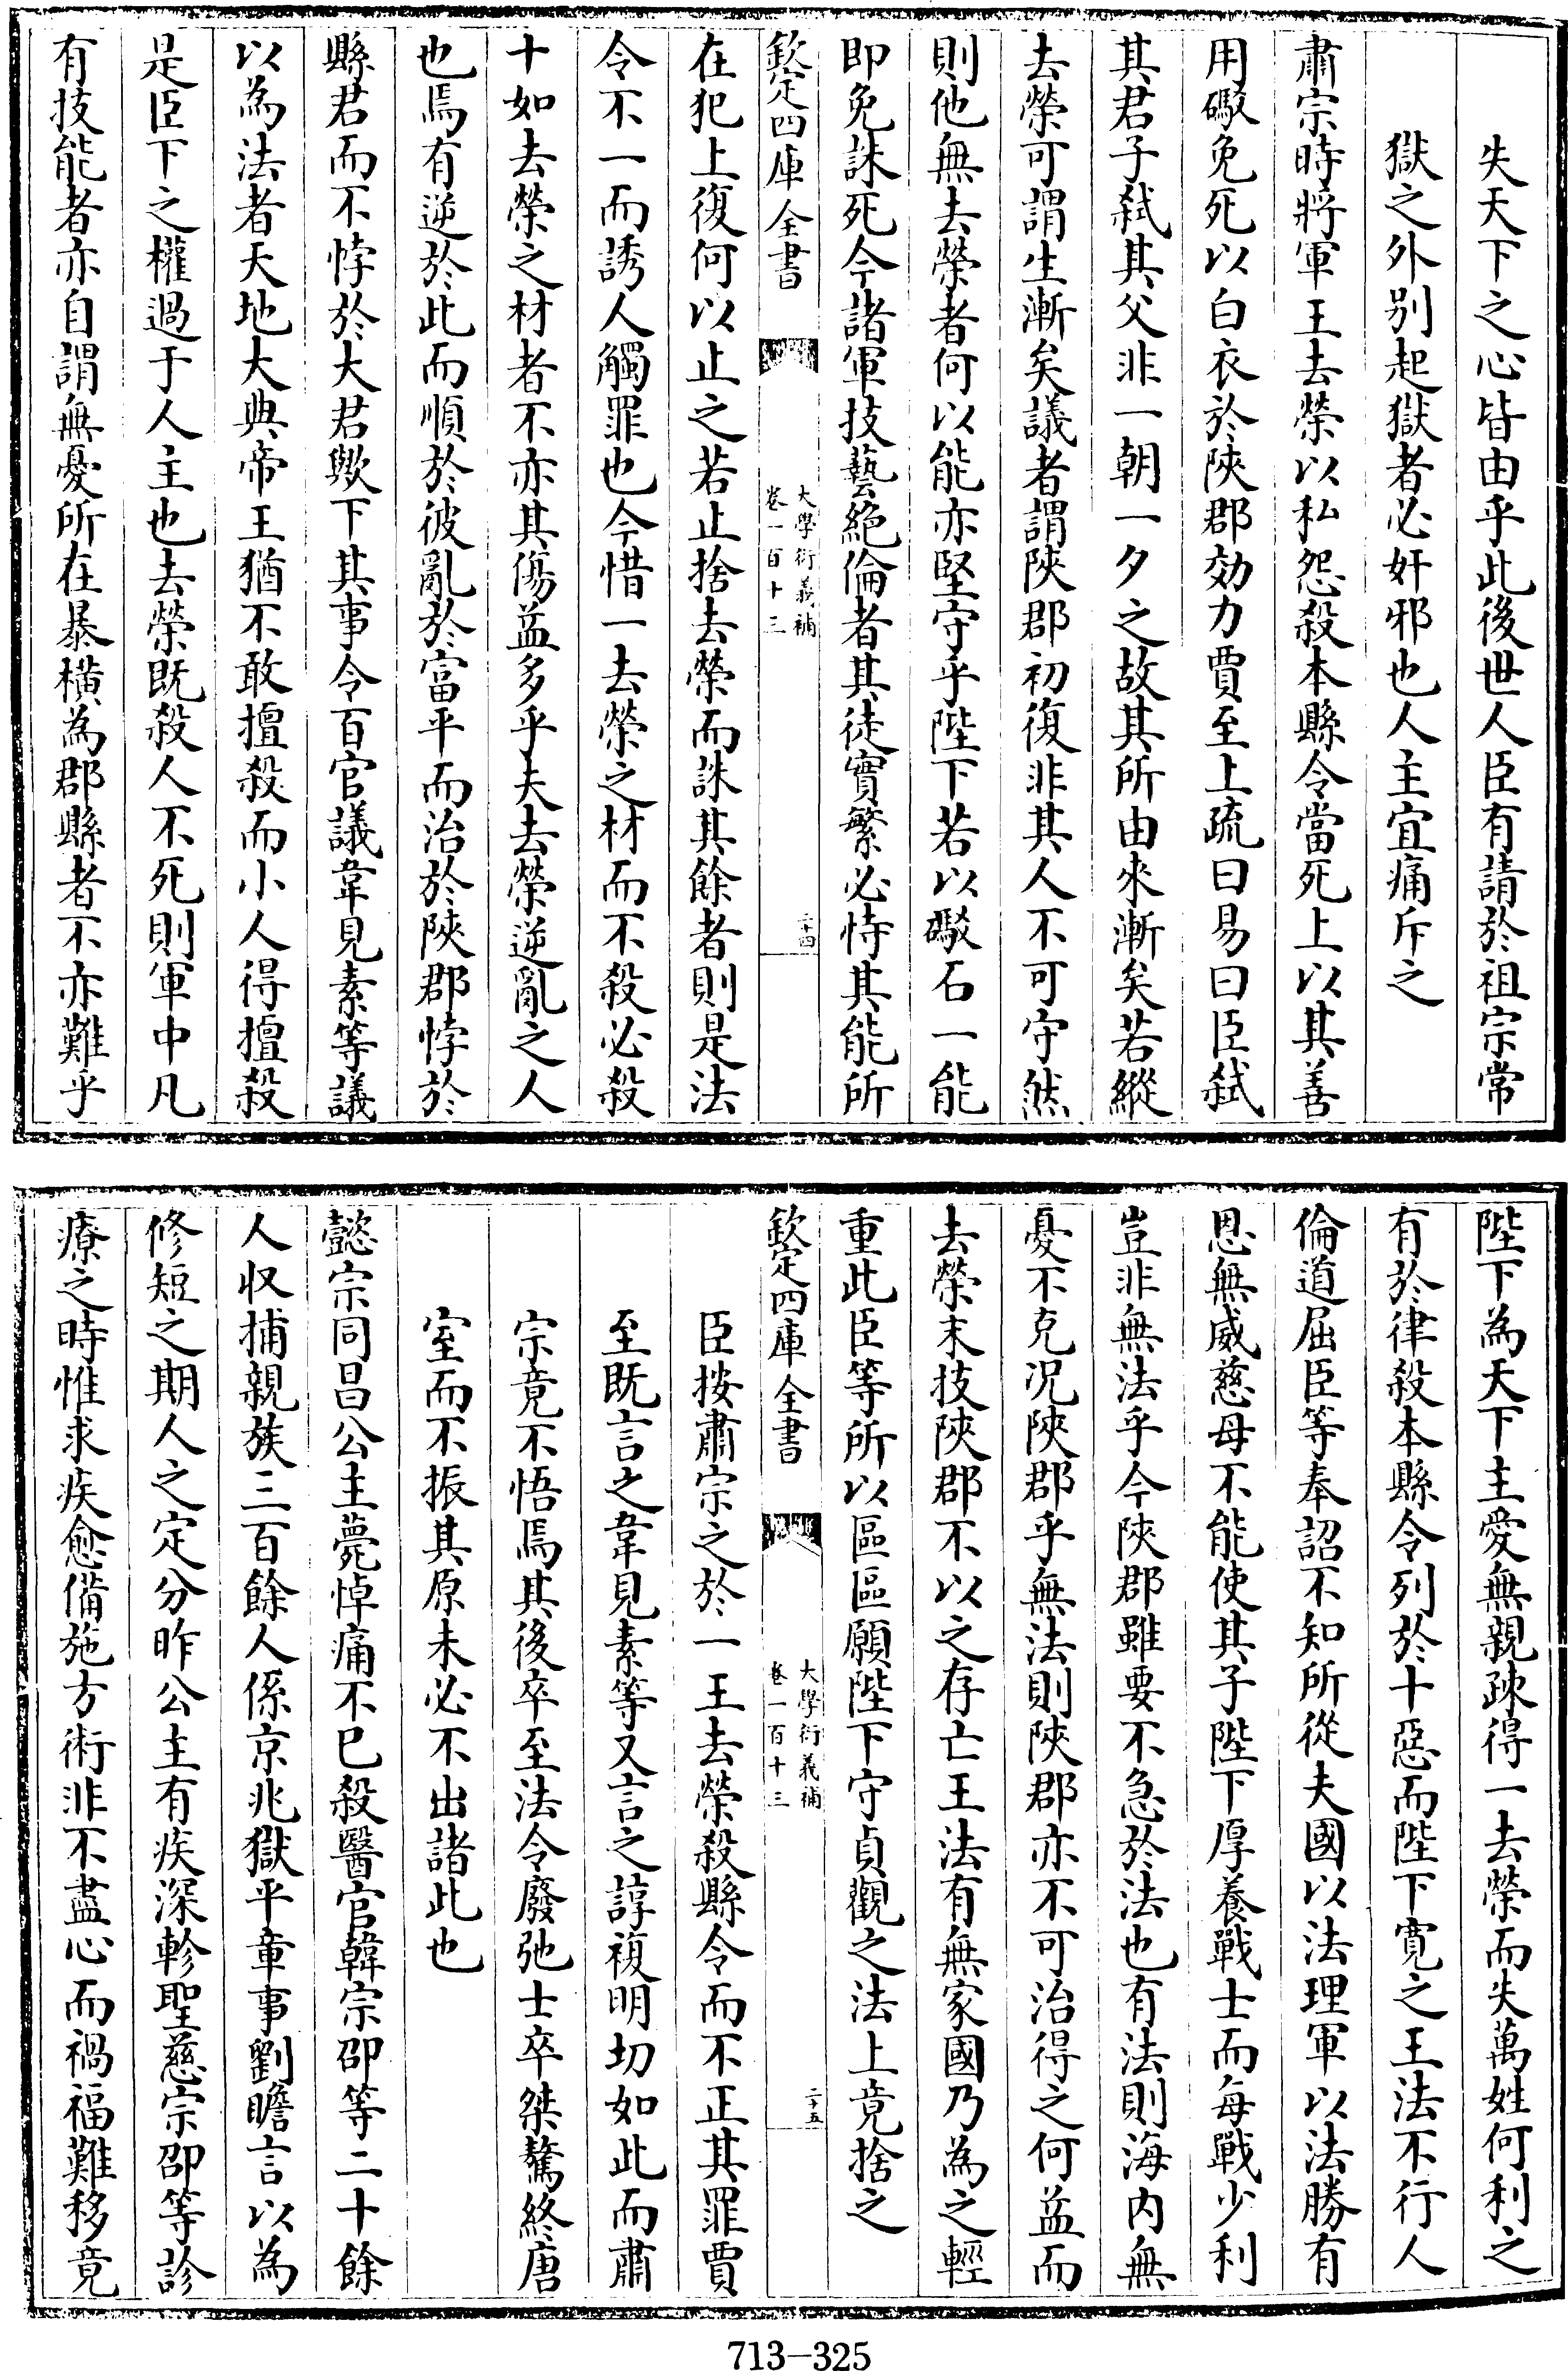 失天下之心皆由乎此後世人臣有請於祖宗常
獄之外别起獄者必奸邪也人主宜痛斥之
肅宗時將軍王去榮以私怨殺本縣令當死上以其善
用礮免死以白衣於陝郡効力賈至上疏曰易曰臣弑
其君子弑其父非一朝一夕之故其所由來漸矣若縱
去榮可謂生漸矣議者謂陝郡初復非其人不可守然
則他無去榮者何以能亦堅守乎陛下若以礮石一能
即免誅死今諸軍技藝絶倫者其徒實繁必恃其能所
欽定四庫全書
大學衍義補
卷一百十三
二十四
在犯上復何以止之若止捨去榮而誅其餘者則是法
令不一而誘人觸罪也今惜一去榮之材而不殺必殺
十如去榮之材者不亦其傷益多乎夫去榮逆亂之人
也焉有逆於此而順於彼亂於富平而治於陝郡悖於
縣君而不悖於大君歟下其事令百官議韋見素等議
以為法者天地大典帝王猶不敢擅殺而小人得擅殺
是臣下之權過于人主也去榮既殺人不死則軍中凡
有技能者亦自謂無憂所在暴横為郡縣者不亦難乎
陛下為天下主愛無親疎得一去榮而失萬姓何利之
有於律殺本縣令列於十惡而陛下寛之王法不行人
倫道屈臣等奉詔不知所從夫國以法理軍以法勝有
恩無威慈母不能使其子陛下厚養戰士而每戰少利
豈非無法乎今陝郡雖要不急於法也有法則海内無
憂不克况陝郡乎無法則陝郡亦不可治得之何益而
去榮末技陝郡不以之存亡王法有無家國乃為之輕
重此臣等所以區區願陛下守貞觀之法上竟捨之
欽定四庫全書
大學衍義補
卷一百十三
二十五
臣按肅宗之於一王去榮殺縣令而不正其罪賈
至既言之韋見素等又言之諄複明切如此而肅
宗竟不悟焉其後卒至法令廢弛士卒桀驁終唐
室而不振其原未必不出諸此也
懿宗同昌公主薨悼痛不已殺醫官韓宗邵等二十餘
人収捕親族三百餘人係京兆獄平章事劉瞻言以為
修短之期人之定分昨公主有疾深軫聖慈宗邵等診
療之時惟求疾愈備施方術非不盡心而禍福難移竟
713—325